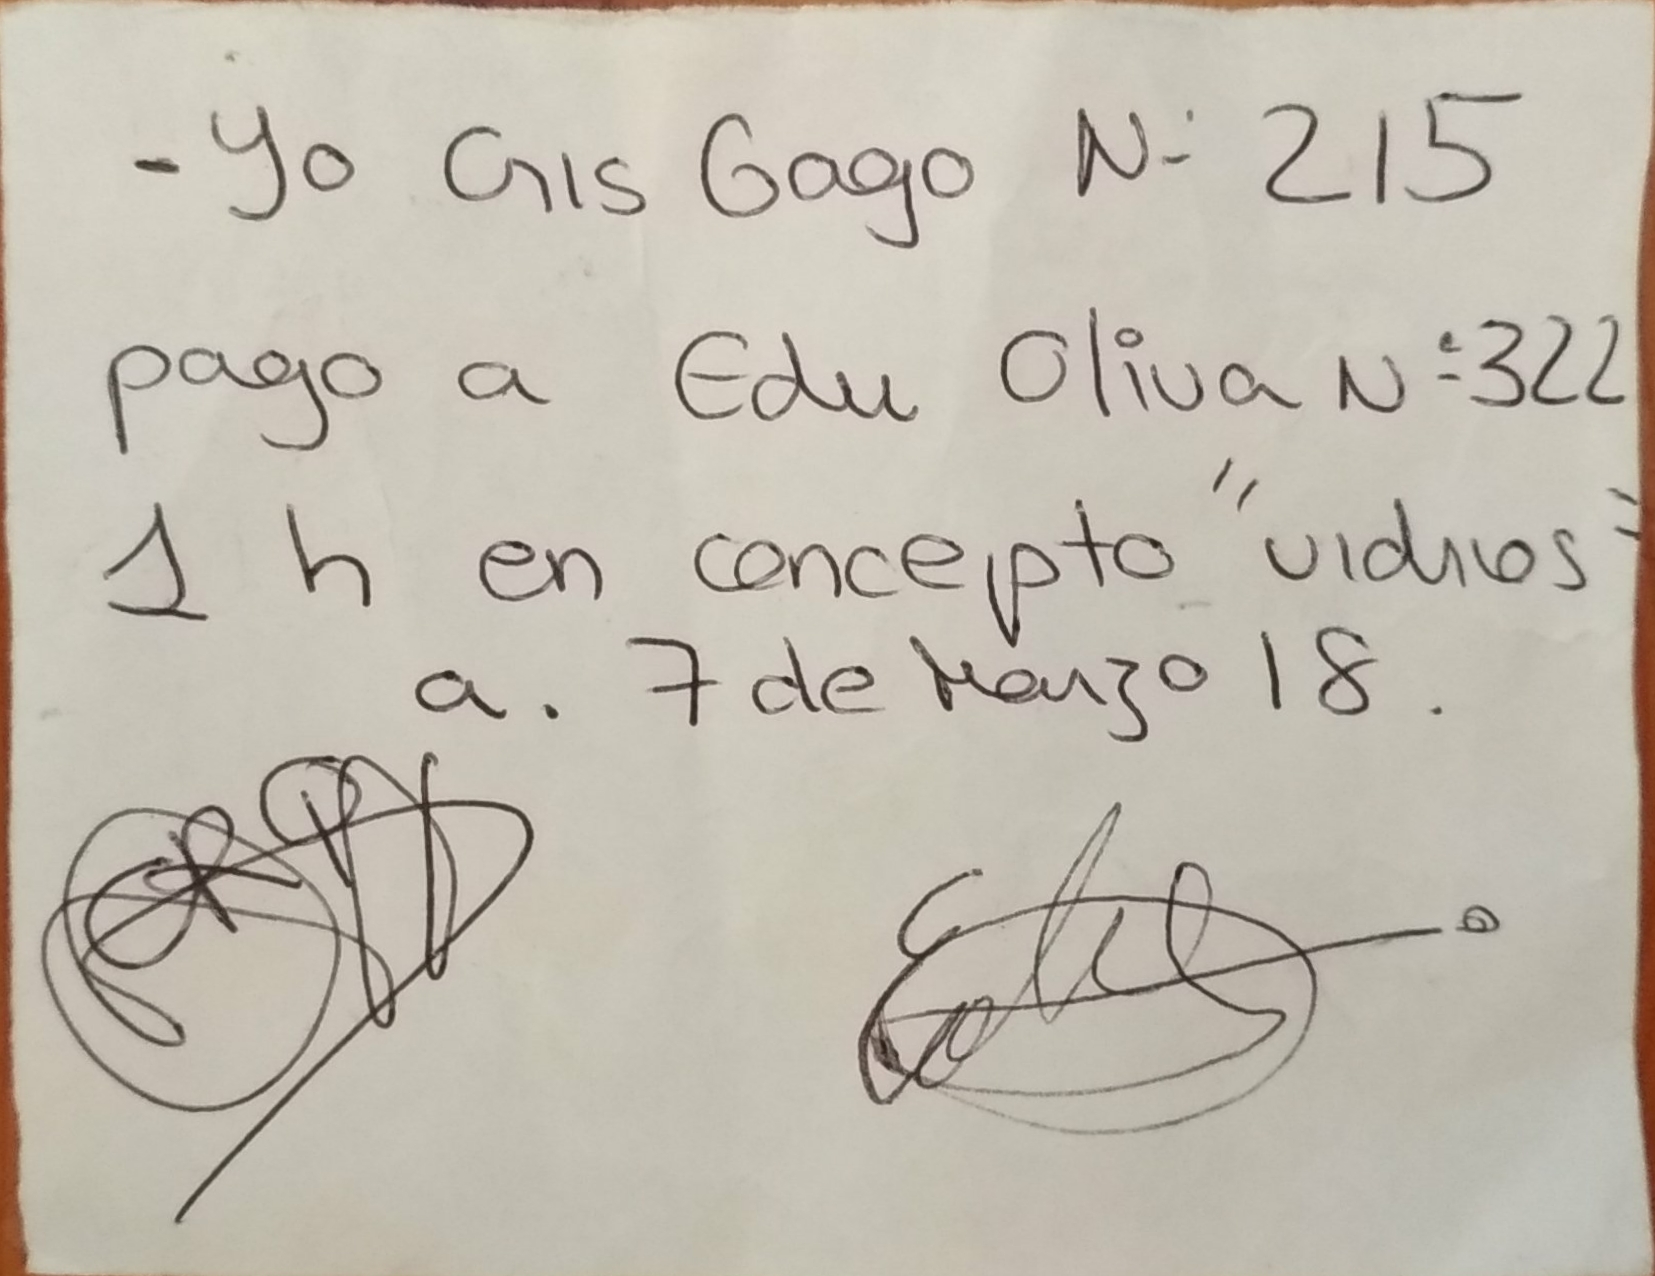 - Yo Cris Gago Nº 215
pago a Edu Oliva Nº 322
1 h en concepto "vidrios"
a. 7 de Marzo 18.